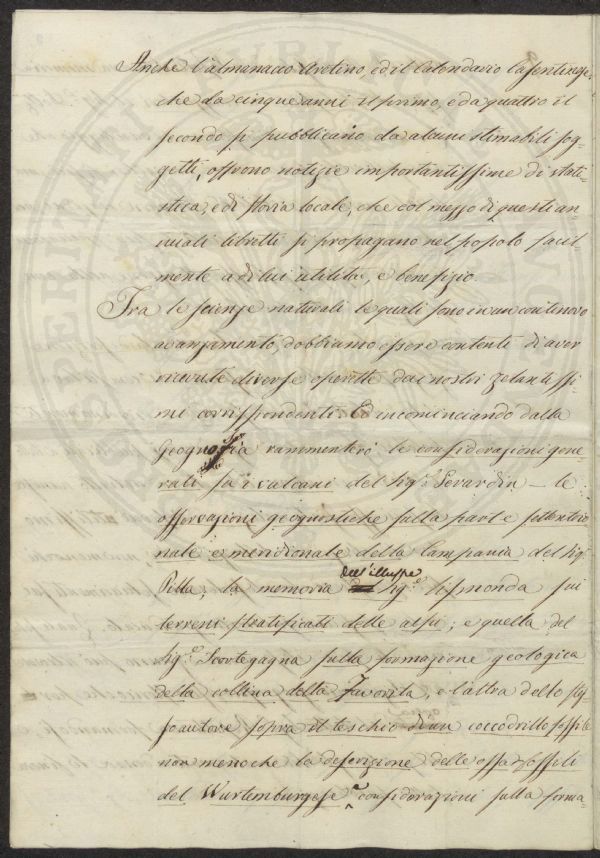 Anche l'almanacco Aretino, ed il Calendario Casentinese,
che da cinque anni il primo, e da quattro il
secondo si pubblicano da alcuni stimabili sog-
getti, offrono notizie importantissime di stati-
stica, e di storia locale, che col mezzo di questi an-
nuali libretti si propagano nel popolo facil-
mente a di lui utilità, e benefizio.
Tra le scienze naturali le quali sono in un continovo
avanzamento, dobbiamo essere contenti di aver
ricevute diverse operette dai nostri zelantissi-
mi corrispondenti. Ed incominciando dalla
Geognosia rammenterò le considerazioni gene-
rali su i vulcani del Sig.r Gerardin – le
osservazioni geognostiche sulla parte settentrio-
nale e meridionale della Campania del Sig.r
Pilla; la memoria dell'illustre Sig.r Sismonda sui
terreni stratificati delle alpi; e quella del
Sig.r Scortegagna sulla formazione geologica
della collina della Favorita, e l'altra dello stes-
so autore sopra il teschio di un coccodrillo fossile
non meno che la descrizione delle ossa fossili
del Wurtemburgese e considerazioni sulla forma-